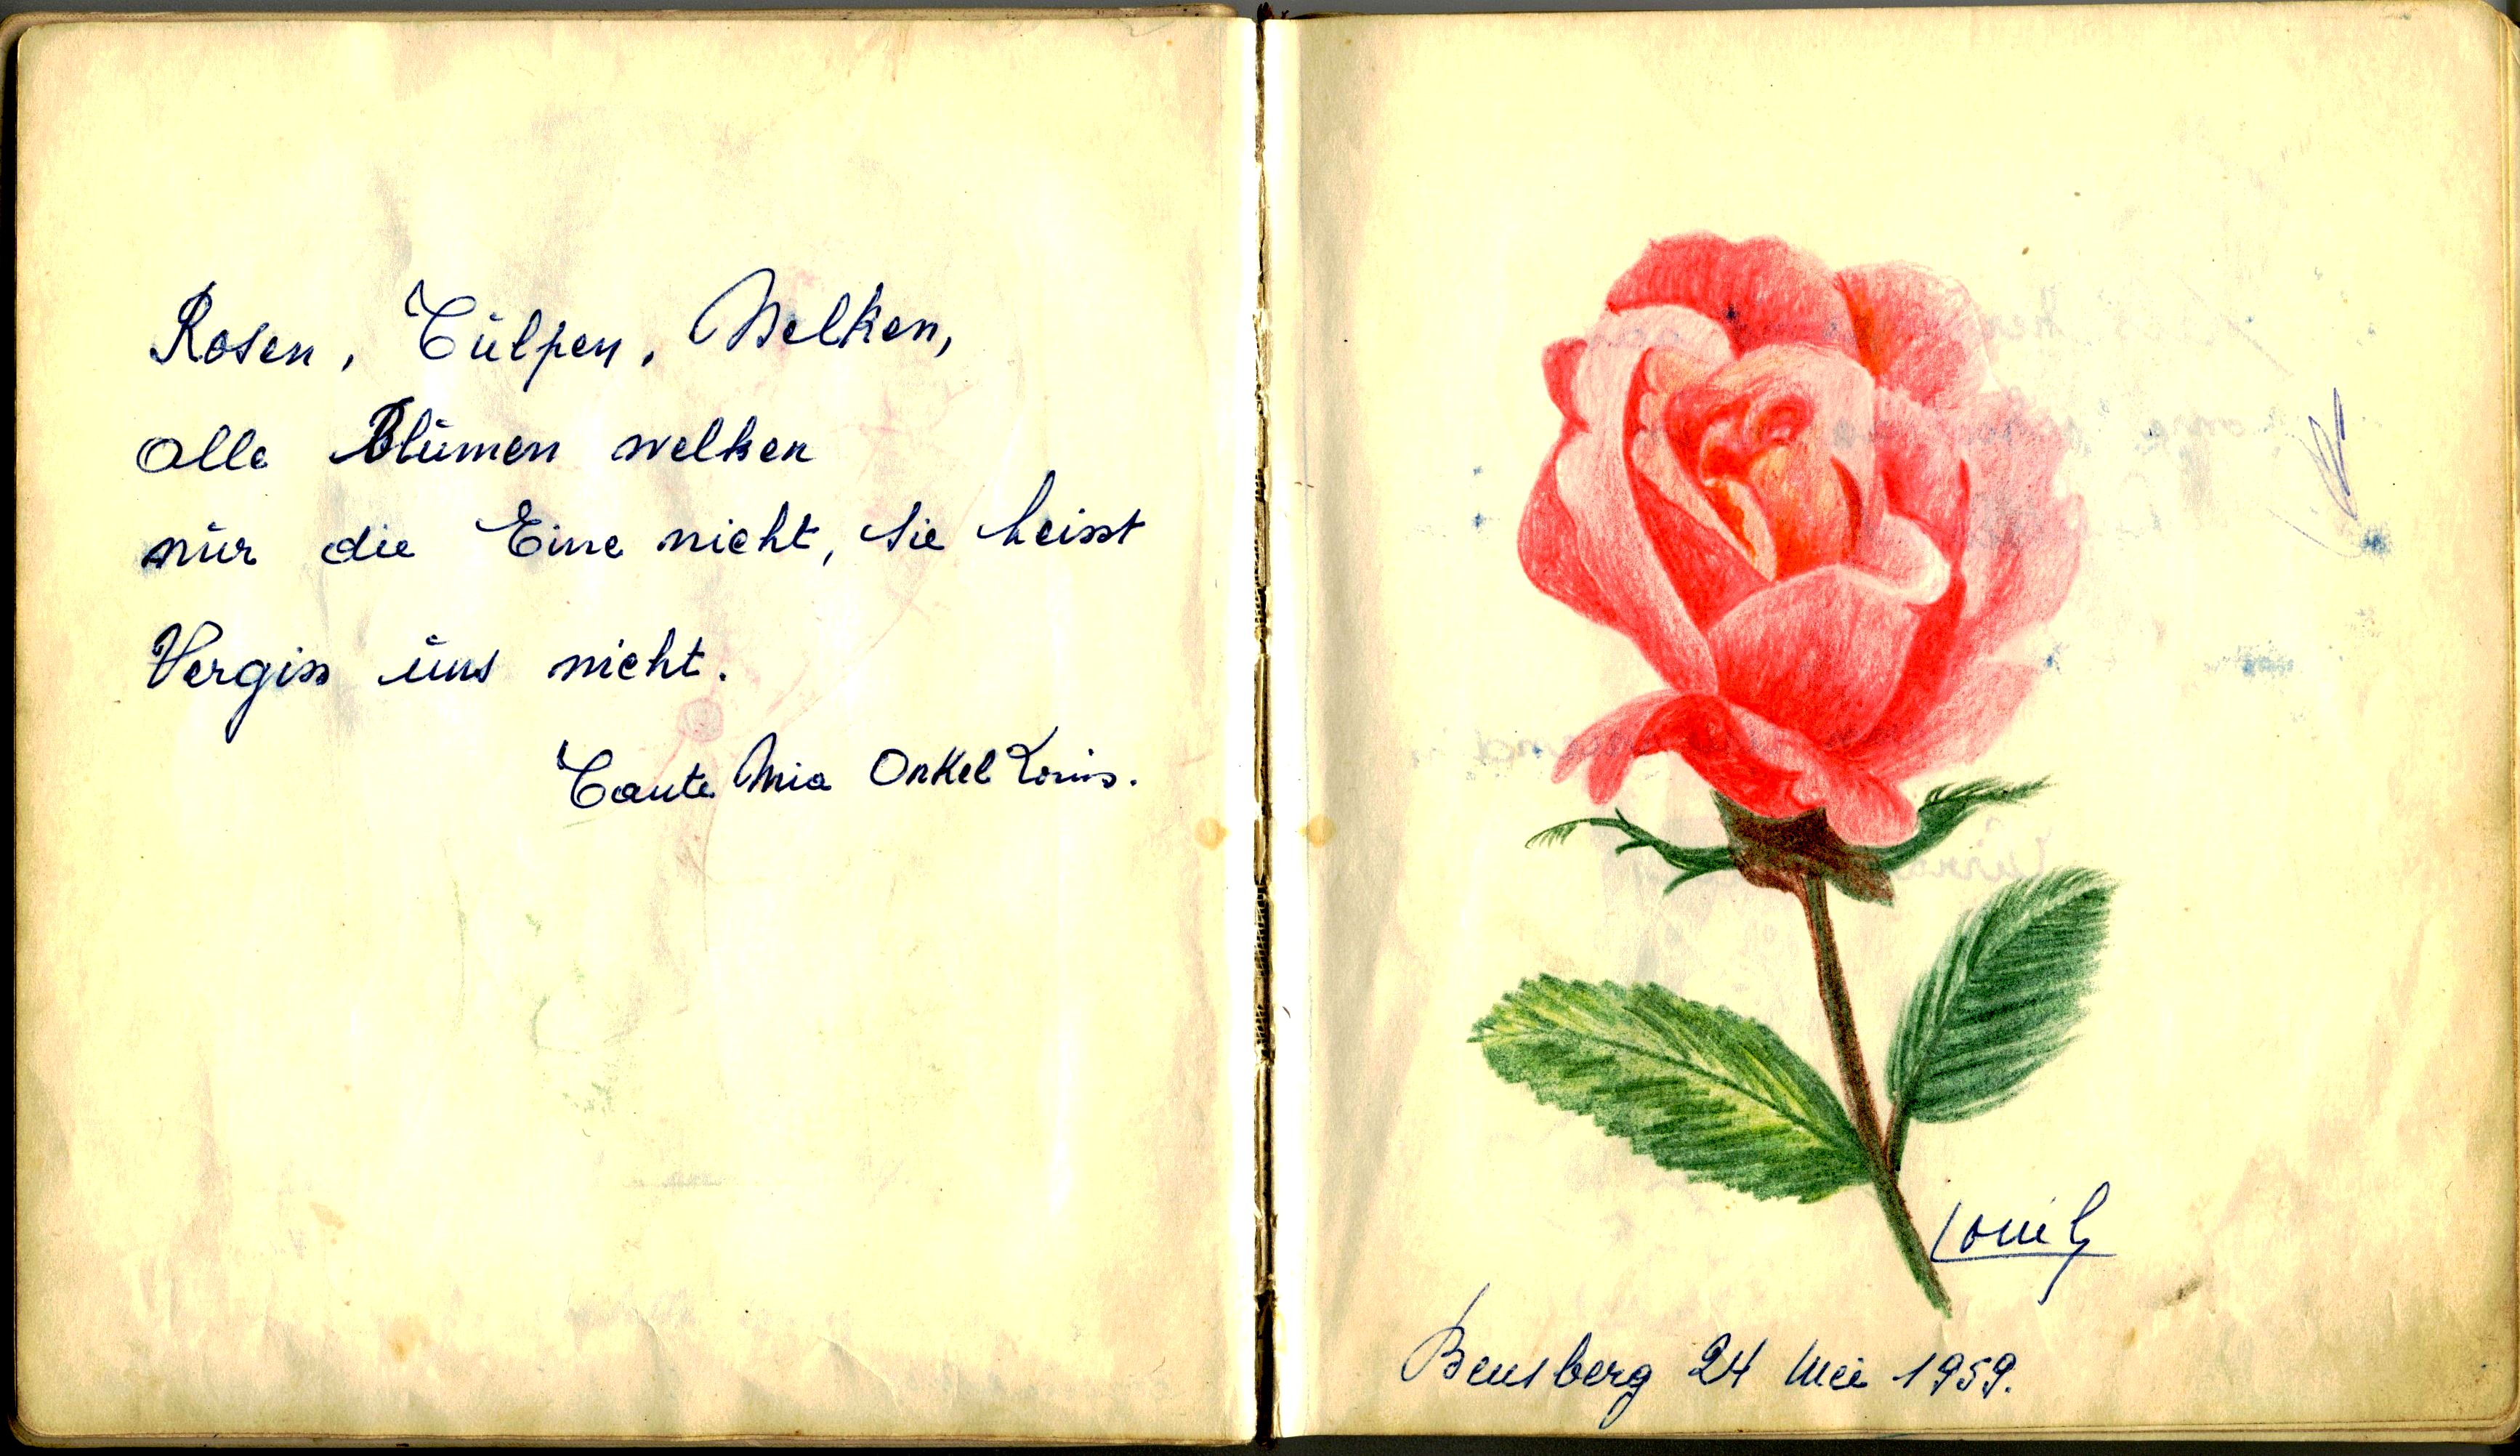 Rosen, Tulpen, Nelken,
alle Blumen welken
nur die Eine nicht, sie heisst
Vergiss uns nicht.
Tante Mia Onkel Louis.
Bensberg 24 Mei 1959.